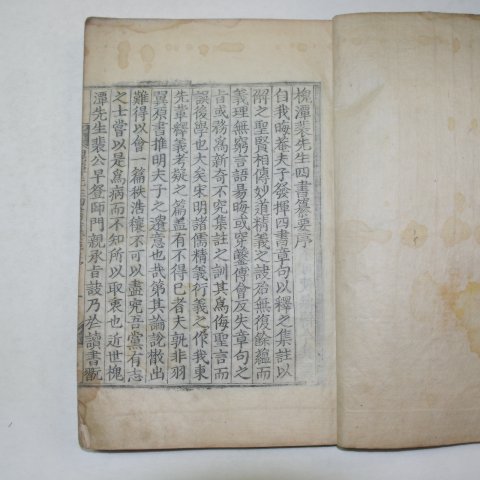 槐潭裵先生四書纂要序
自我晦菴夫子發揮四書章句以釋之集註以
解之聖賢相傳妙道精義之訣殆無復餘蘊而
義理無窮言語易晦或穿鑿傅會反失章句之
旨或務爲新奇不究集註之訓其爲侮聖言而
誤後學也大矣宋明諸儒精義衍義之作我東
先輩釋義考疑之篇蓋有不得已者夫孰非羽
翼原書推明夫子之遺意也哉第其論說散出
難得以會一篇秩浩穰不可以盡究吾黨有志
之士嘗以是爲病而不知所以取衷也近世槐
潭先生裵公早登師門親承旨訣乃於讀書翫